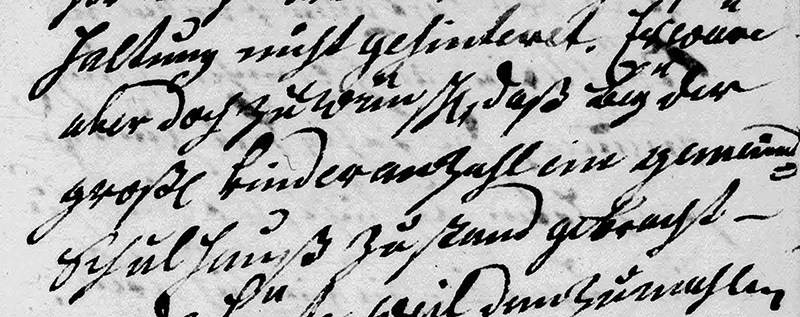 haltung nicht gehinteret. Es wäre
aber doch zu wünsch, daß bey der
große kinder anzahl ein gemeind
Schulhauß zu stand gebracht –
weil dan zumahlen